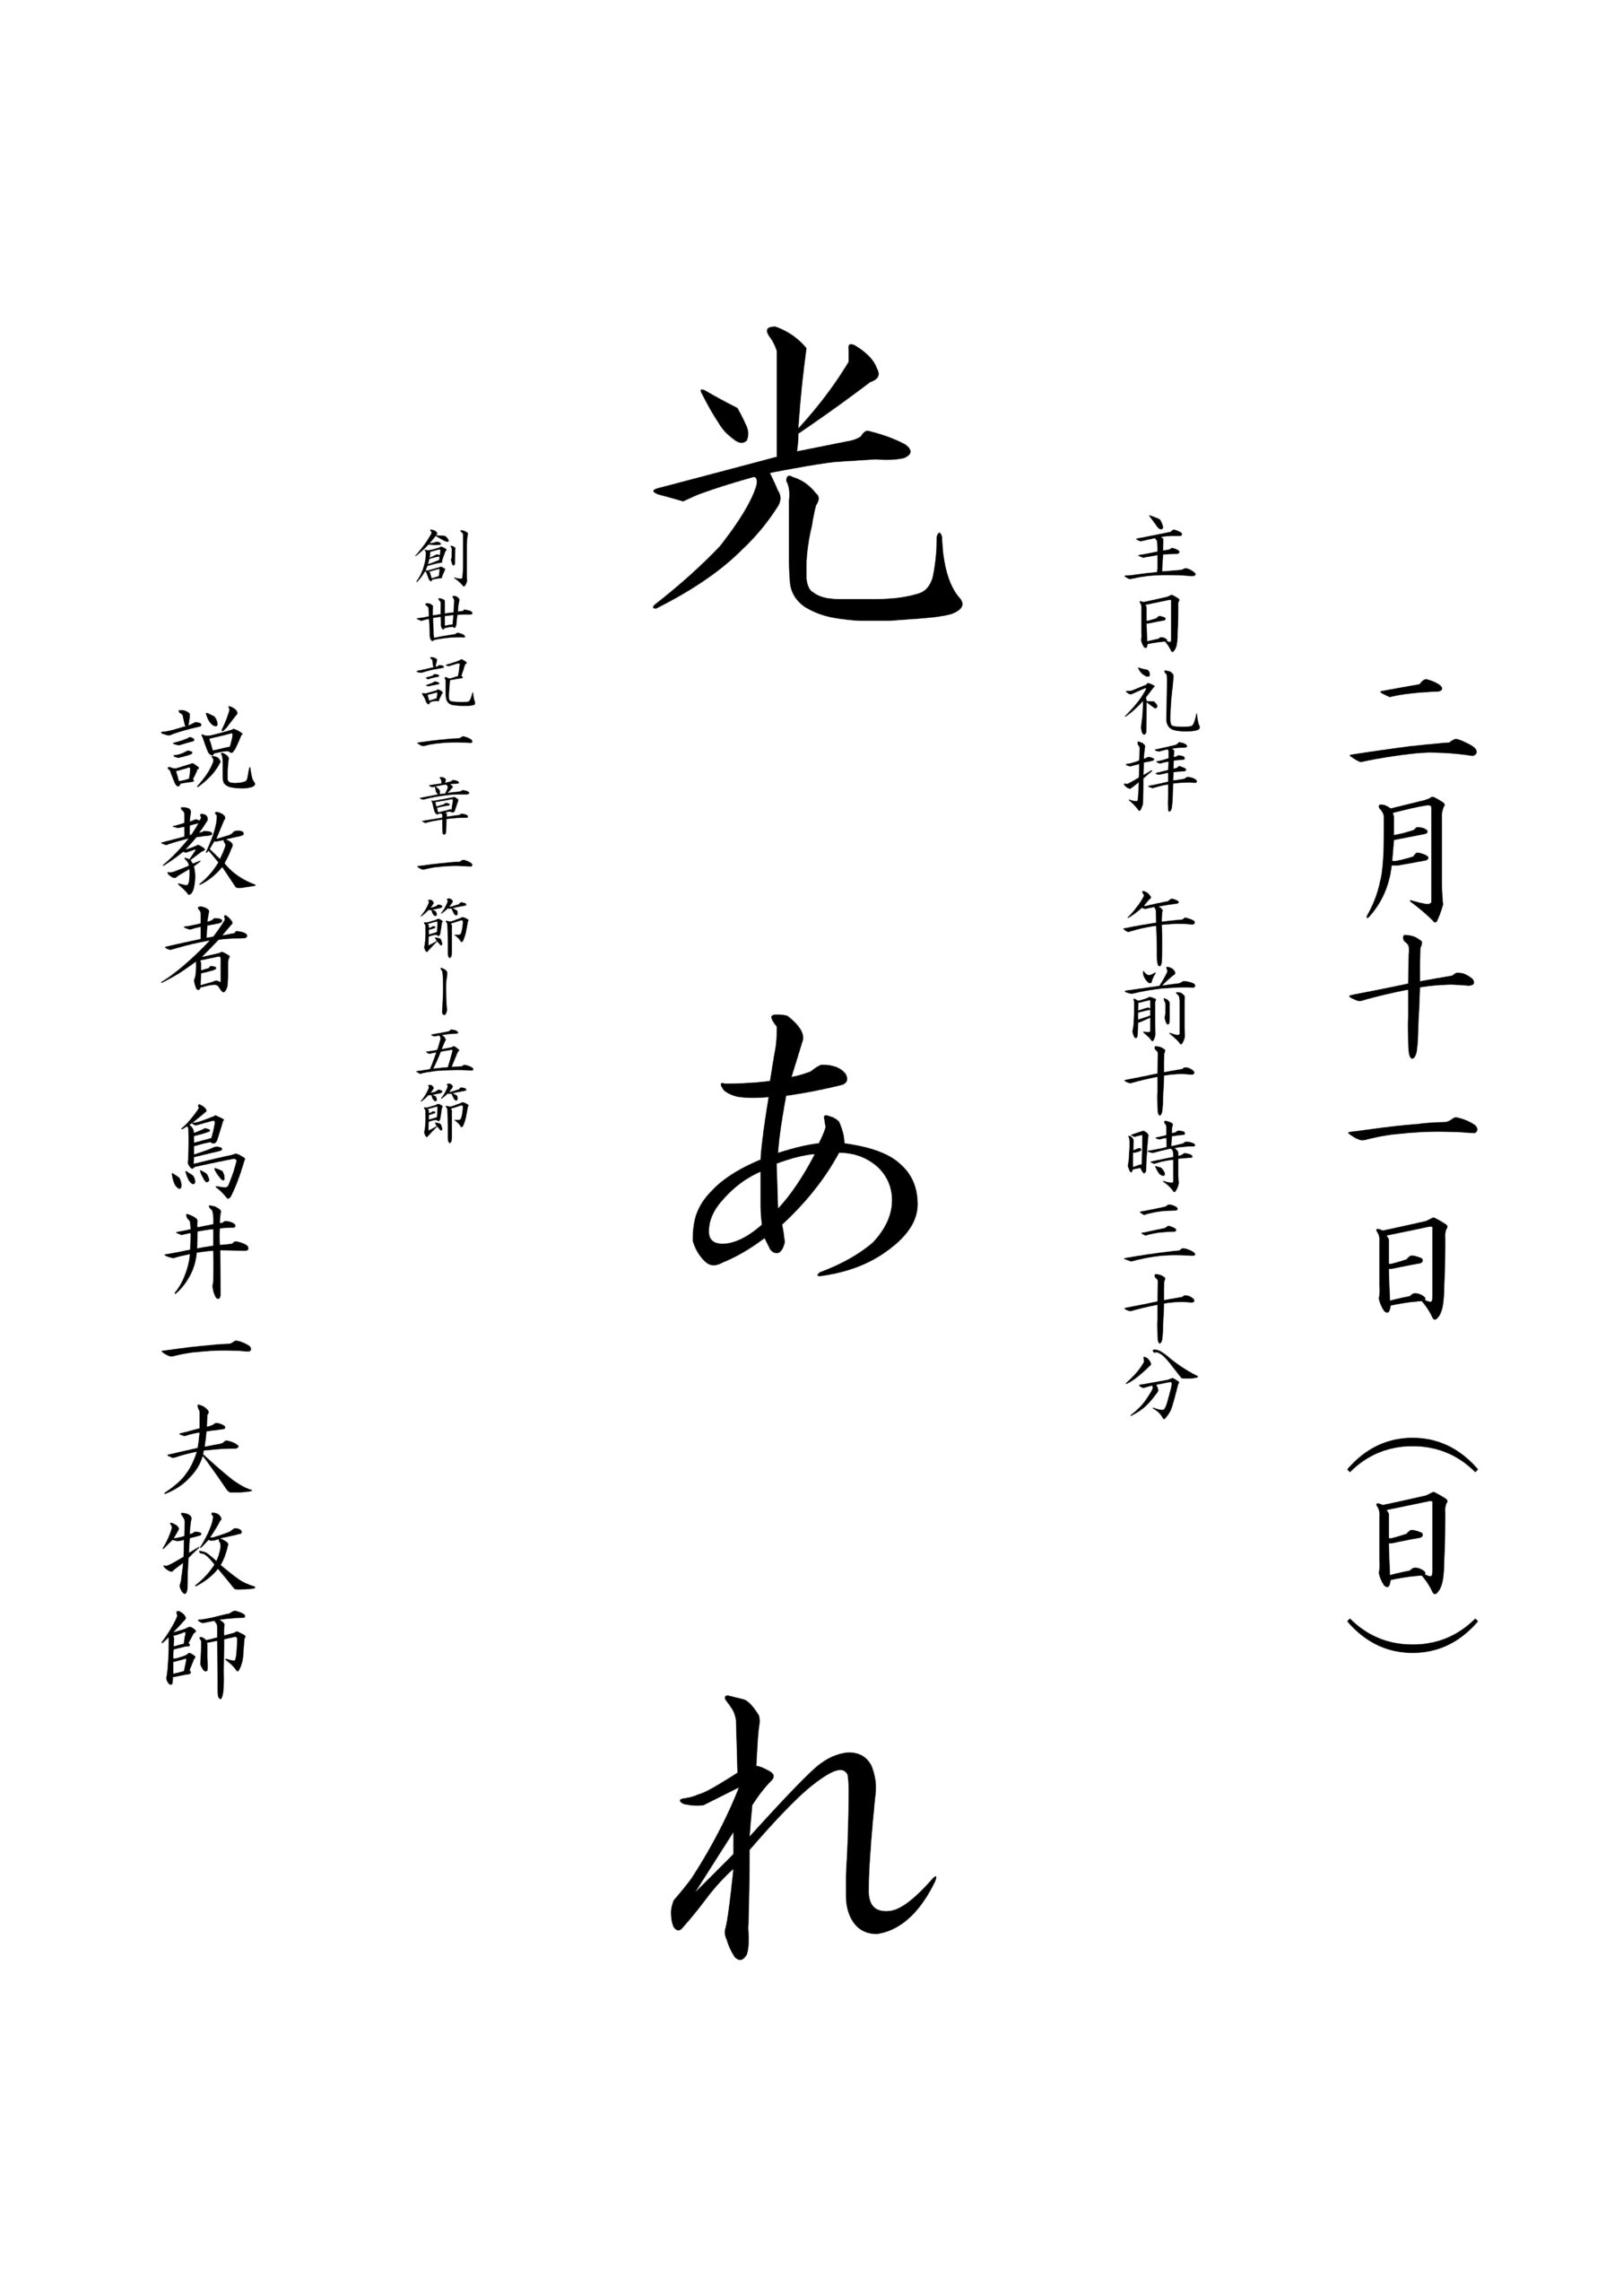 二月十一日（日）
主日礼拝　午前十時三十分
光あれ
創世記一章一節ー五節
説教者　烏井一夫牧師